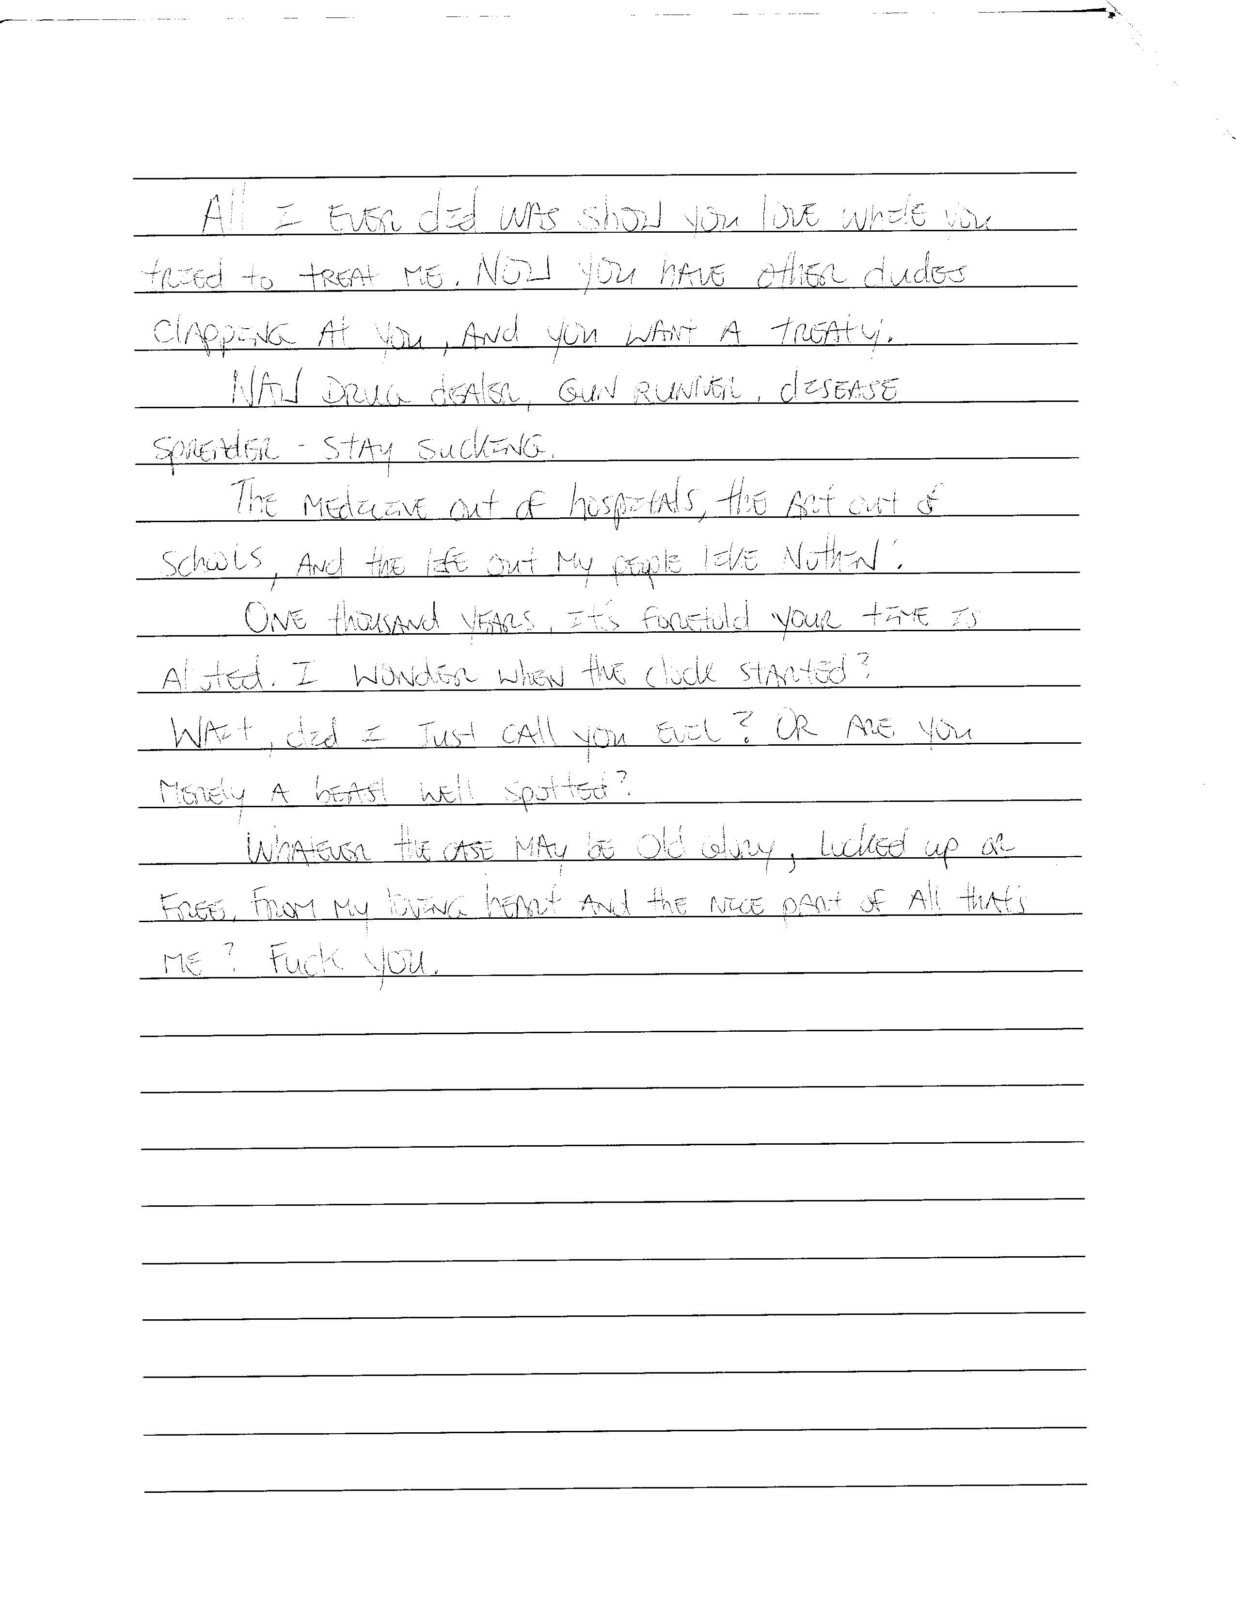 All I EVER did WAS show you love while you
tried to treat ME. Now you HAVE other dudes
clapping At you, And you WANT A treaty.
NAW Drug dealer, Gun Runner, disease
spreader - stay sucking.
The medicine out of hospitals, the Art out of
schools, And the life out My people like Nuthin'.
One thousand years, it's foretold your time is
Aloted. I wonder when the clock started?
Wait, did I Just call you evil? Or Are you
Merely A beast well spotted?
Whatever the case may be Old Glory, locked up or
free, from my loving heart And the nice part of All that's
me? Fuck you.